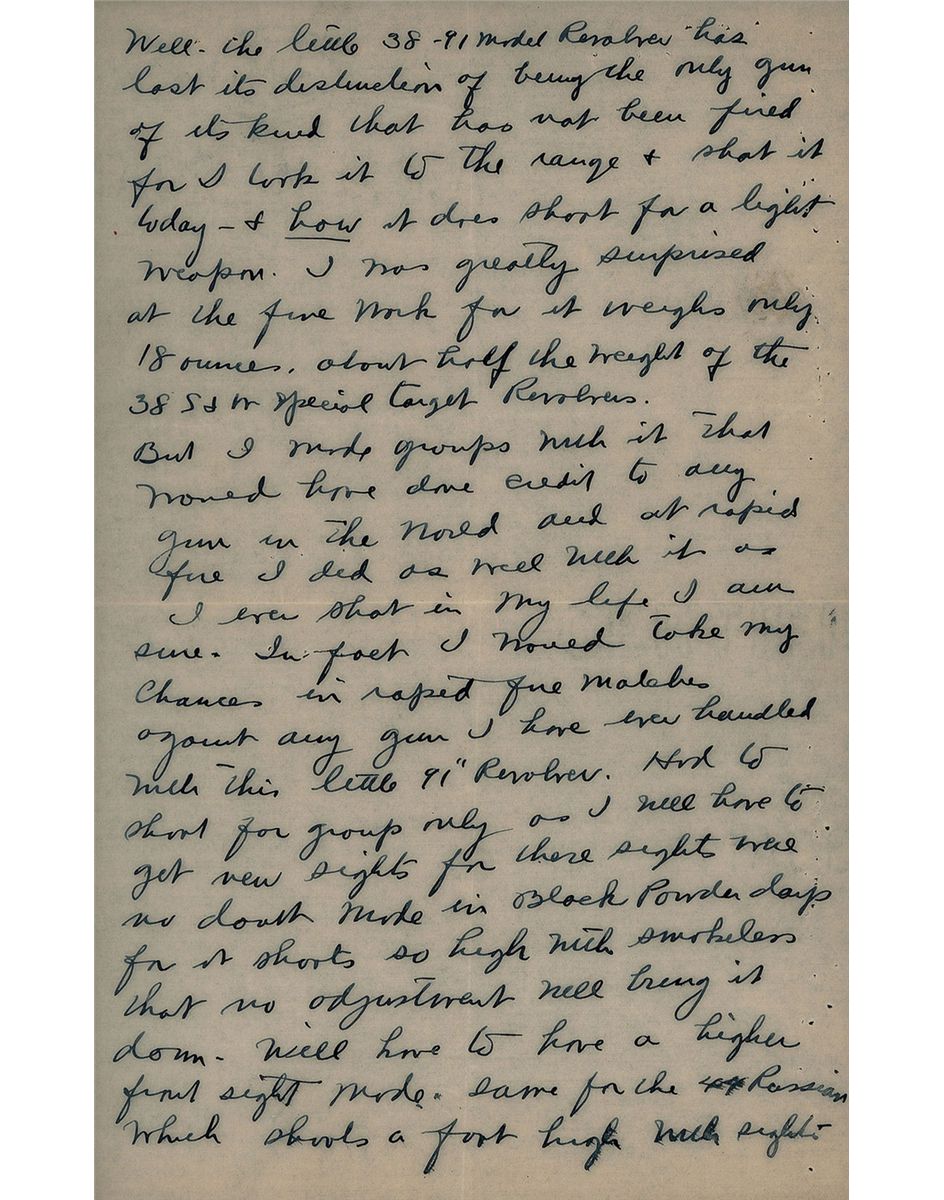 Well - the little 38 - 91 Model Revolver has
lost its distinction of being the only gun
of its kind that has not been fired
for I took it to the range + shot it
today - & how it does shoot for a light
weapon. I was greatly surprised
at the fine work for it weighs only
18 ounces, about half the weight of the
38 S & W Special Target Revolvers.
But I made groups with it that
would have done credit to any
gun in the world and at rapid
fire I did as well with it as
I ever shot in my life I am
sure. In fact I would take my
chances in rapid fire matches
against any gun I have ever handled
with this little 91" Revolver. Had to
shoot for group only as I will have to
get new sights for these sights were
no doubt made in Black Powder days
for it shoots so high with smokeless
that no adjustment will bring it
down - Will have to have a higher
front sight made. Same for the 44 Russian
which shoots a foot high with sights